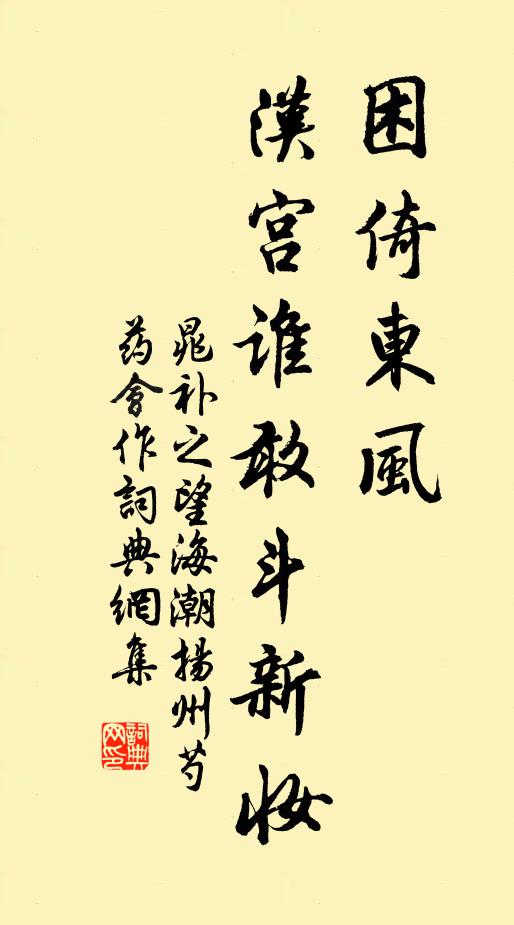 困倚東風
漢宮誰敢斗新妝
晁補之望海潮揚州芍
药會作詞典網集
詞典网印